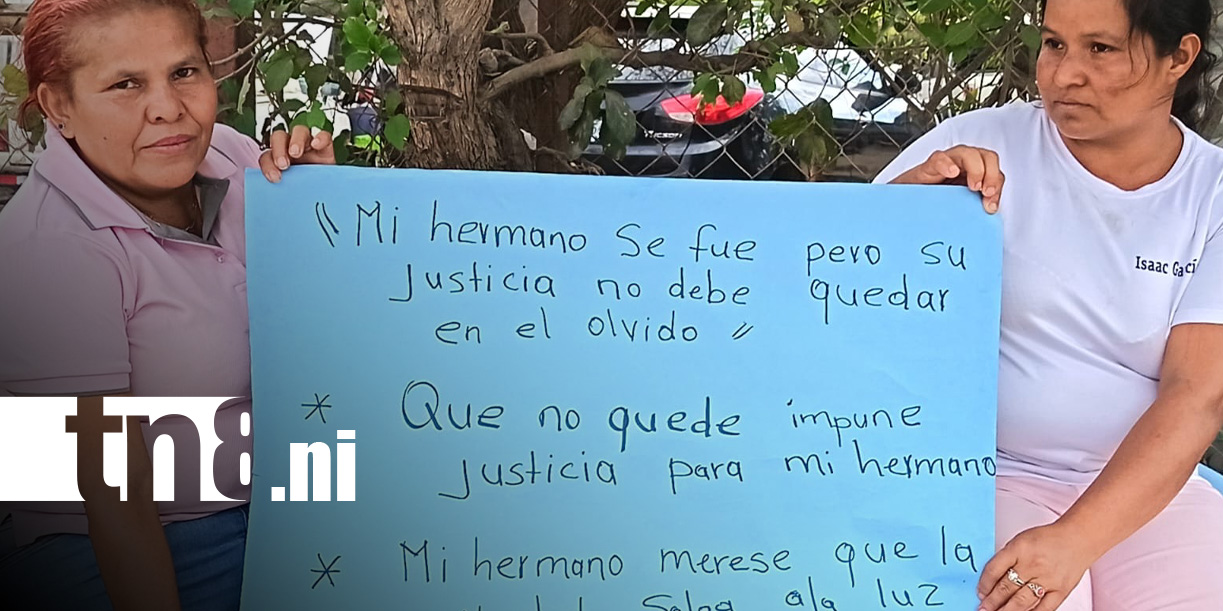 《Mi hermano Se fue pero su
Justicia no debe quedar
en el olvido》
* Que no quede impune
Justicia para mi hermano
* Mi hermano merese que la
Salga ala luz
Isaac
tn8.ni